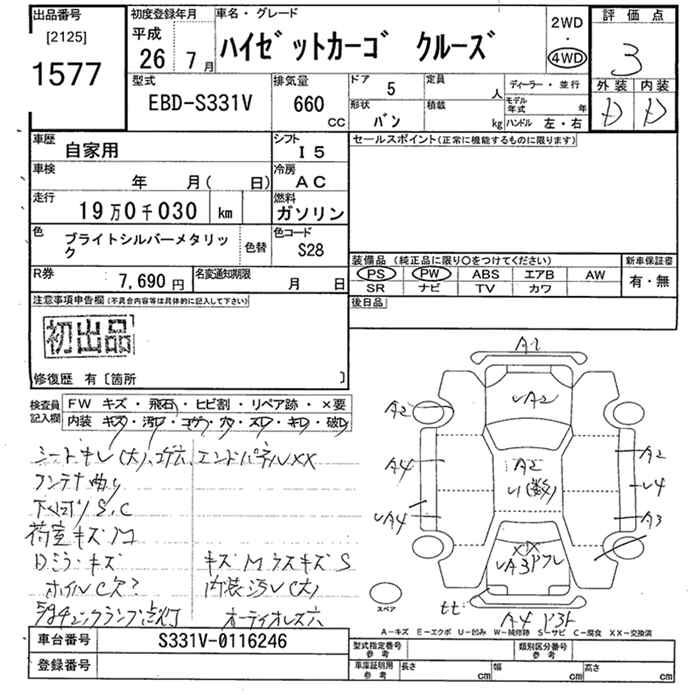 出品番号
[2125]
1577
初度登録年月
平成
26年7月
車名・グレード
ハイゼットカーゴ クルーズ
2WD
・
4WD
評価点
3
外装 内装
D D
型式
EBD-S331V
排気量
660
CC
ドア
5
定員
人
ディーラー・並行
形状
バン
積載
kg
モデル年式
年
ハンドル 左・右
車歴
自家用
シフト
I5
車検
年 月( 日)
冷房
AC
走行
19万0千030 km
燃料
ガソリン
色
ブライトシルバーメタリック
色替
色コード
S28
R券
7,690円
名変通知期限
月 日
セールスポイント(正常に機能するものに限ります)
装備品 (純正品に限り○をつけてください)
新車保証書
PS PW ABS エアB AW
有・無
SR ナビ TV カワ
後日品
注意事項申告欄(不具合内容等は具体的に記入して下さい)
初出品
修復歴 有〔箇所 〕
検査員記入欄
FW キズ・飛石・ヒビ割・リペア跡・×要
内装 キズ・汚れ・コゲ・穴・スレ・キレ・破れ
シートキレ(大)、コゲ穴、エンドパネルXX
アンテナ曲り
下廻りS、C
荷室キズM
Dミラーキズ
キズM ウスキズS
ホイルC欠?
内装汚レ(大)
エンジンチェックランプ点灯
オーディオレス穴
A1
UA2
A2
A2
U(数)
A2
A4
UA4
A2
U4
A3
XX
UA3
スペア
A4
A-キズ E-エクボ U-凹み W-補修跡 S-サビ C-腐食 XX-交換済
車台番号
S331V-0116246
登録番号
型式指定番号
参考
類別区分番号
参考
車庫証明用
参考
長さ
cm
幅
cm
高さ
cm